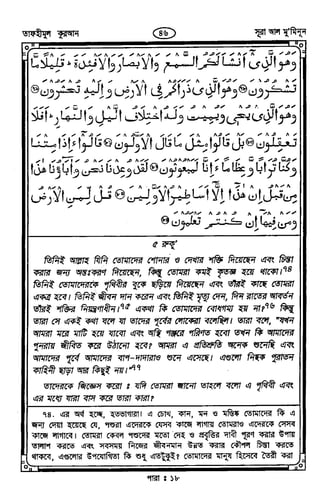 তাফহীমুল কুরআন
৪৬
সূরা আল মু’মিনুন
وَهُوَ الَّذِيْٓ اَنْشَاَ لَكُمُ السَّمْعَ وَالْاَبْصَارَ وَالْاَفْئِدَةَ ؕ قَلِيْلًا مَّا
تَشْكُرُوْنَ ﴿۷۸﴾ وَهُوَ الَّذِيْ ذَرَاَكُمْ فِي الْاَرْضِ وَاِلَيْهِ تُحْشَرُوْنَ ﴿۷۹﴾
وَهُوَ الَّذِيْ يُحْيٖ وَيُمِيْتُ وَلَهُ اخْتِلَافُ الَّيْلِ وَالنَّهَارِ ؕ اَفَلَا
تَعْقِلُوْنَ ﴿۸۰﴾ بَلْ قَالُوْا مِثْلَ مَا قَالَ الْاَوَّلُوْنَ ﴿۸۱﴾ قَالُوْٓا ءَاِذَا مِتْنَا
وَكُنَّا تُرَابًا وَّعِظَامًا ءَاِنَّا لَمَبْعُوْثُوْنَ ﴿۸۲﴾ لَقَدْ وُعِدْنَا نَحْنُ وَاٰبَآؤُنَا هٰذَا
مِنْ قَبْلُ اِنْ هٰذَٓا اِلَّآ اَسَاطِيْرُ الْاَوَّلِيْنَ ﴿۸۳﴾ قُلْ لِّمَنِ الْاَرْضُ
وَمَنْ فِيْهَآ اِنْ كُنْتُمْ تَعْلَمُوْنَ ﴿۸۴﴾
৫ রুকূ’
তিনিই আল্লাহ যিনি তোমাদের শোনার ও দেখার শক্তি দিয়েছেন এবং চিন্তা
করার জন্য অন্তঃকরণ দিয়েছেন, কিন্তু তোমরা কমই কৃতজ্ঞ হয়ে থাকো।৭৪
তিনিই তোমাদেরকে পৃথিবীর বুকে ছড়িয়ে দিয়েছেন এবং তাঁরই কাছে তোমরা
একত্র হবে। তিনিই জীবন দান করেন এবং তিনিই মৃত্যু দেন, দিন রাতের আবর্তন
তাঁরই শক্তির নিয়ন্ত্রণাধীন।৭৫ একথা কি তোমাদের বোধগম্য হয় না?৭৬ কিন্তু
তারা সে একই কথা বলে যা তাদের পূর্বের লোকেরা বলেছিল। তারা বলে, “যখন
আমরা মরে মাটি হয়ে যাবো এবং অস্থি পঞ্জরে পরিণত হবো তখন কি আমাদের
পুনরায় জীবিত করে উঠানো হবে? আমরা এ প্রতিশ্রুতি অনেক শুনেছি এবং
আমাদের পূর্বে আমাদের বাপ-দাদারাও শুনে এসেছে। এগুলো নিছক পুরাতন
কাহিনী ছাড়া আর কিছুই নয়।”৭৭
তাদেরকে জিজ্ঞেস করো : যদি তোমরা জানো তাহলে বলো এ পৃথিবী এবং
এর মধ্যে যারা বাস করে তারা কারা?
৭৪. এর অর্থ হচ্ছে, হতভাগারা। এ চোখ, কান, মন ও মস্তিষ্ক তোমাদের কি এ
জন্য দেয়া হয়েছে যে, পশুরা এদেরকে যেসব কাজে লাগায় তোমরাও এদেরকে সেসব
কাজে লাগাবে। তোমরা কেবল পশুদের মতো দেহ ও প্রবৃত্তির দাবী পূরণ করার উপায়
তালাশ করতে এবং সবসময় নিজের জীবনমান উন্নত করার কৌশল চিন্তা করতে
থাকবে, এগুলোর উপযোগিতা কি শুধু এতটুকুই? তোমাদের মানুষ হিসেবে তৈরী করা
পারা : ১৮